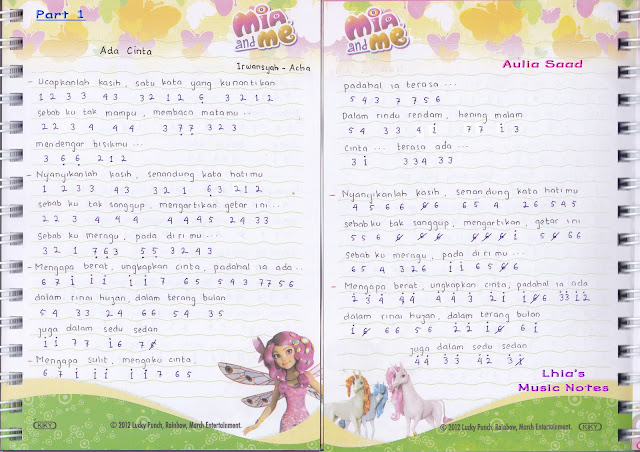 Part 1
Mia and me
Ada Cinta
Irwansyah - Acha
- Ucapkanlah kasih, satu kata yang kunantikan
1 2 3 3 4 3 3 2 1 2 6̣ 3 2 1 2
sebab ku tak mampu, membaca matamu...
2 2 3 4 4 4 3 7̣ 7̣ 3 2 3
mendengar bisikmu...
3 6̣ 6̣ 2 1 2
- Nyanyikanlah kasih, senandung kata hatimu
1 2 3 3 4 3 3 2 1 6̣ 3 2 1 2
sebab ku tak sanggup, mengartikan getar ini...
2 2 3 4 4 4 4 4 4 5 2 4 3 3
Sebab ku meragu, pada dirimu...
3 2 1 7̣ 6̣ 3 5̣ 5̣ 3 2 4 3
- Mengapa berat, ungkapkan cinta, padahal ia ada..
6 7 i i i i i 7 6 5 5 4 3 7 7 5 6
dalam rinai hujan, dalam terang bulan
5 4 3 3 2 4 6 6 5 4 3 5
juga dalam sedu sedan
i i 7 7 i 6 7
- Mengapa sulit, mengaku cinta,
6 7 i i i i i 7 6 5
© 2012 Lucky Punch, Rainbow, March Entertainment.
KKY
Mia and me
Aulia Saad
padahal ia terasa...
5 4 3 7 7 5 6
Dalam rindu rendam, hening malam
5 4 3 3 4 i 7 7 i 3
cinta... terasa ada...
3 i 3 3 4 3 3
- Nyanyikanlah kasih, senandung kata hatimu
4 5 6 6 6 6 6 5 4 2 6 5 4 5
sebab ku tak sanggup, mengartikan, getar ini
5 5 6 6 6 6 6 6 6 i 5 6 6 6
sebab ku meragu, pada dirimu...
6 5 4 3 2 6 i i 6 5 6 6
- Mengapa berat, ungkapkan cinta, padahal ia ada
2 3 4 4 4 4 4 3 2 i i 6 6 3 3 i 2
dalam rinai hujan, dalam terang bulan
i 6 6 6 5 6 2 2 i 6 6 i
juga dalam sedu sedan
4 4 3 3 4 2 3
Lhia's
Music Notes
© 2012 Lucky Punch, Rainbow, March Entertainment.
KKY